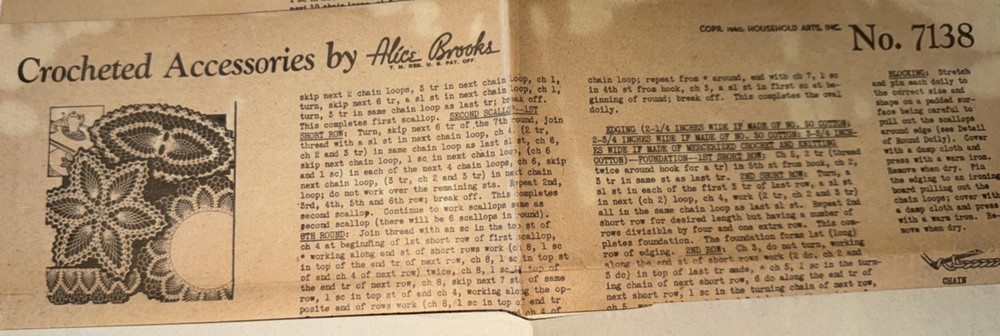 Crocheted Accessories by Alice Brooks
T. M. REG. U. S. PAT. OFF.
COPR. 1940, HOUSEHOLD ARTS, INC.
No. 7138
skip next 2 chain loops, 3 tr in next chain loop, ch 1,
turn, skip next 6 tr, a sl st in next chain loop, ch 1,
turn, 3 tr in same chain loop as last tr; break off.
This completes first scallop. SECOND SCALLOP--1ST
SHORT ROW: Turn, skip next 6 tr of the 7th round, join
thread with a sl st in next chain loop, ch 4, (2 tr,
ch 2 and 3 tr) in same chain loop as last sl st, ch 6,
skip next chain loop, 1 sc in next chain loop, (ch 6
and 1 sc) in each of the next 4 chain loops, ch 6, skip
next chain loop, (3 tr, ch 2 and 3 tr) in next chain
loop; do not work over the remaining sts. Repeat 2nd,
3rd, 4th, 5th and 6th row; break off. This completes
second scallop. Continue to work scallops same as
second scallop (there will be 6 scallops in round).
8TH ROUND: Join thread with an sc in the top st of
ch 4 at beginning of 1st short row of first scallop,
* working along end st of short rows work (ch 8, 1 sc
in top of the end tr of next row, ch 8, 1 sc in top st
of end ch 4 of next row) twice, ch 8, 1 sc in top of
the end tr of next row, ch 8, skip next 7 st of same
row, 1 sc in top st of end ch 4, working along the op-
posite end of rows work (ch 8, 1 sc in top of end tr
chain loop; repeat from * around, end with ch 7, 1 sc
in 4th st from hook, ch 3, a sl st in first sc at be-
ginning of round; break off. This completes the oval
doily.
EDGING (2-1/4 INCHES WIDE IF MADE OF NO. 50 COTTON;
2-3/4 INCHES WIDE IF MADE OF NO. 30 COTTON; 3-3/4 INCH-
ES WIDE IF MADE OF MERCERIZED CROCHET AND KNITTING
COTTON)--FOUNDATION--1ST SHORT ROW: Ch 5, 2 tr (thread
twice around hook for a tr) in 5th st from hook, ch 2,
3 tr in same st as last tr. 2ND SHORT ROW: Turn, a
sl st in each of the first 3 tr of last row, a sl st
in next (ch 2) loop, ch 4, work (2 tr, ch 2 and 3 tr)
all in the same chain loop as last sl st. Repeat 2nd
short row for desired length but having a number of
rows divisible by four and one extra row. This com-
pletes foundation. The foundation forms 1st (long)
row of edging. 2ND ROW: Ch 3, do not turn, working
along the end st of short rows work (2 dc, ch 2 and
3 dc) in top of last tr made, * ch 5, 1 sc in the turn-
ing chain of next short row, 6 dc along the end tr of
next short row, 1 sc in the turning chain of next row,
BLOCKING: Stretch
and pin each doily to
the correct size and
shape on a padded sur-
face being careful to
pull out the scallops
around edge (see Detail
of Round Doily). Cover
with a damp cloth and
press with a warm iron.
Remove when dry. Pin
the edging to an ironing
board pulling out the
chain loops; cover with
a damp cloth and press
with a warm iron. Re-
move when dry.
CHAIN